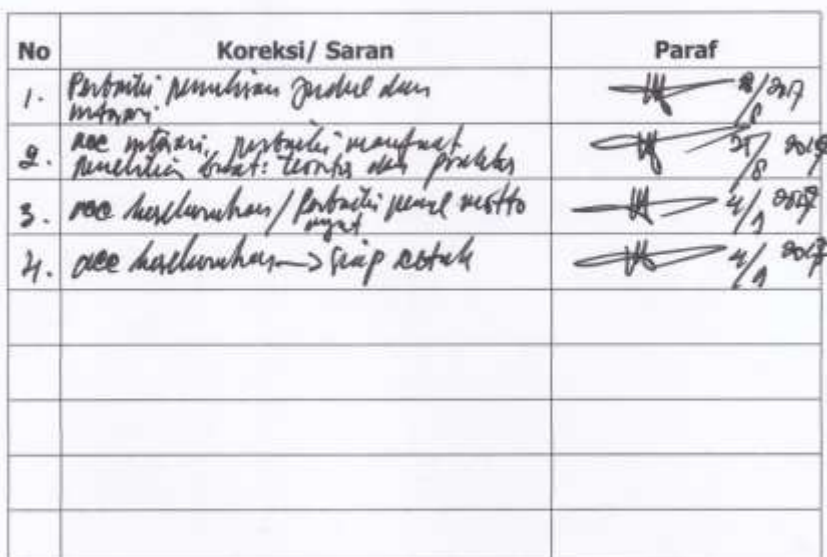 No Koreksi/ Saran Paraf
1. Perbaiki penulisan Judul dan
intisari.
2. acc intisari, perbaiki manfaat
penelitian buat: teoritis dan praktis
3. acc keseluruhan / Perbaiki motto
4. acc keseluruhan -> siap cetak